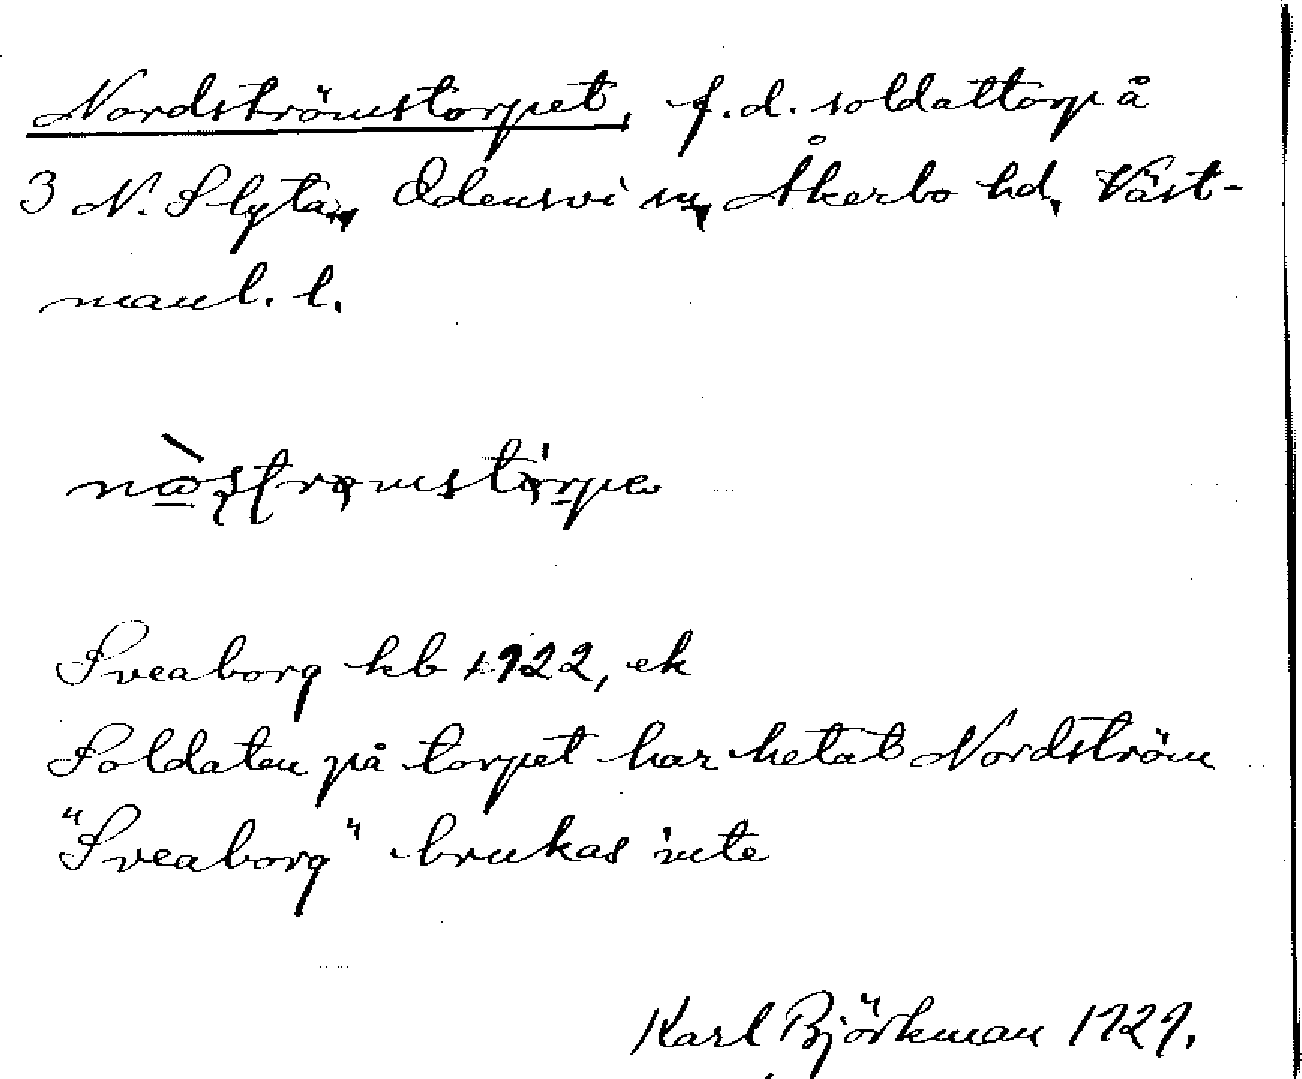 Nordströmstorpet, f.d. soldattorp å
3 N. Slyta, Odensvi sn, Åkerbo hd, Väst-
manl. l.
Sveaborg kb 1922, ek
Soldaten på torpet har hetat Nordström
"Sveaborg" brukas inte
Karl Björkman 1929.